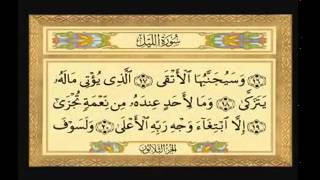 سُورَةُ اللَّيْلِ
وَسَيُجَنَّبُهَا الْأَتْقَى ۝١٧ الَّذِي يُؤْتِي مَالَهُ
يَتَزَكَّى ۝١٨ وَمَا لِأَحَدٍ عِنْدَهُ مِنْ نِعْمَةٍ تُجْزَى ۝١٩
إِلَّا ابْتِغَاءَ وَجْهِ رَبِّهِ الْأَعْلَى ۝٢٠ وَلَسَوْفَ
الجزء الثلاثون